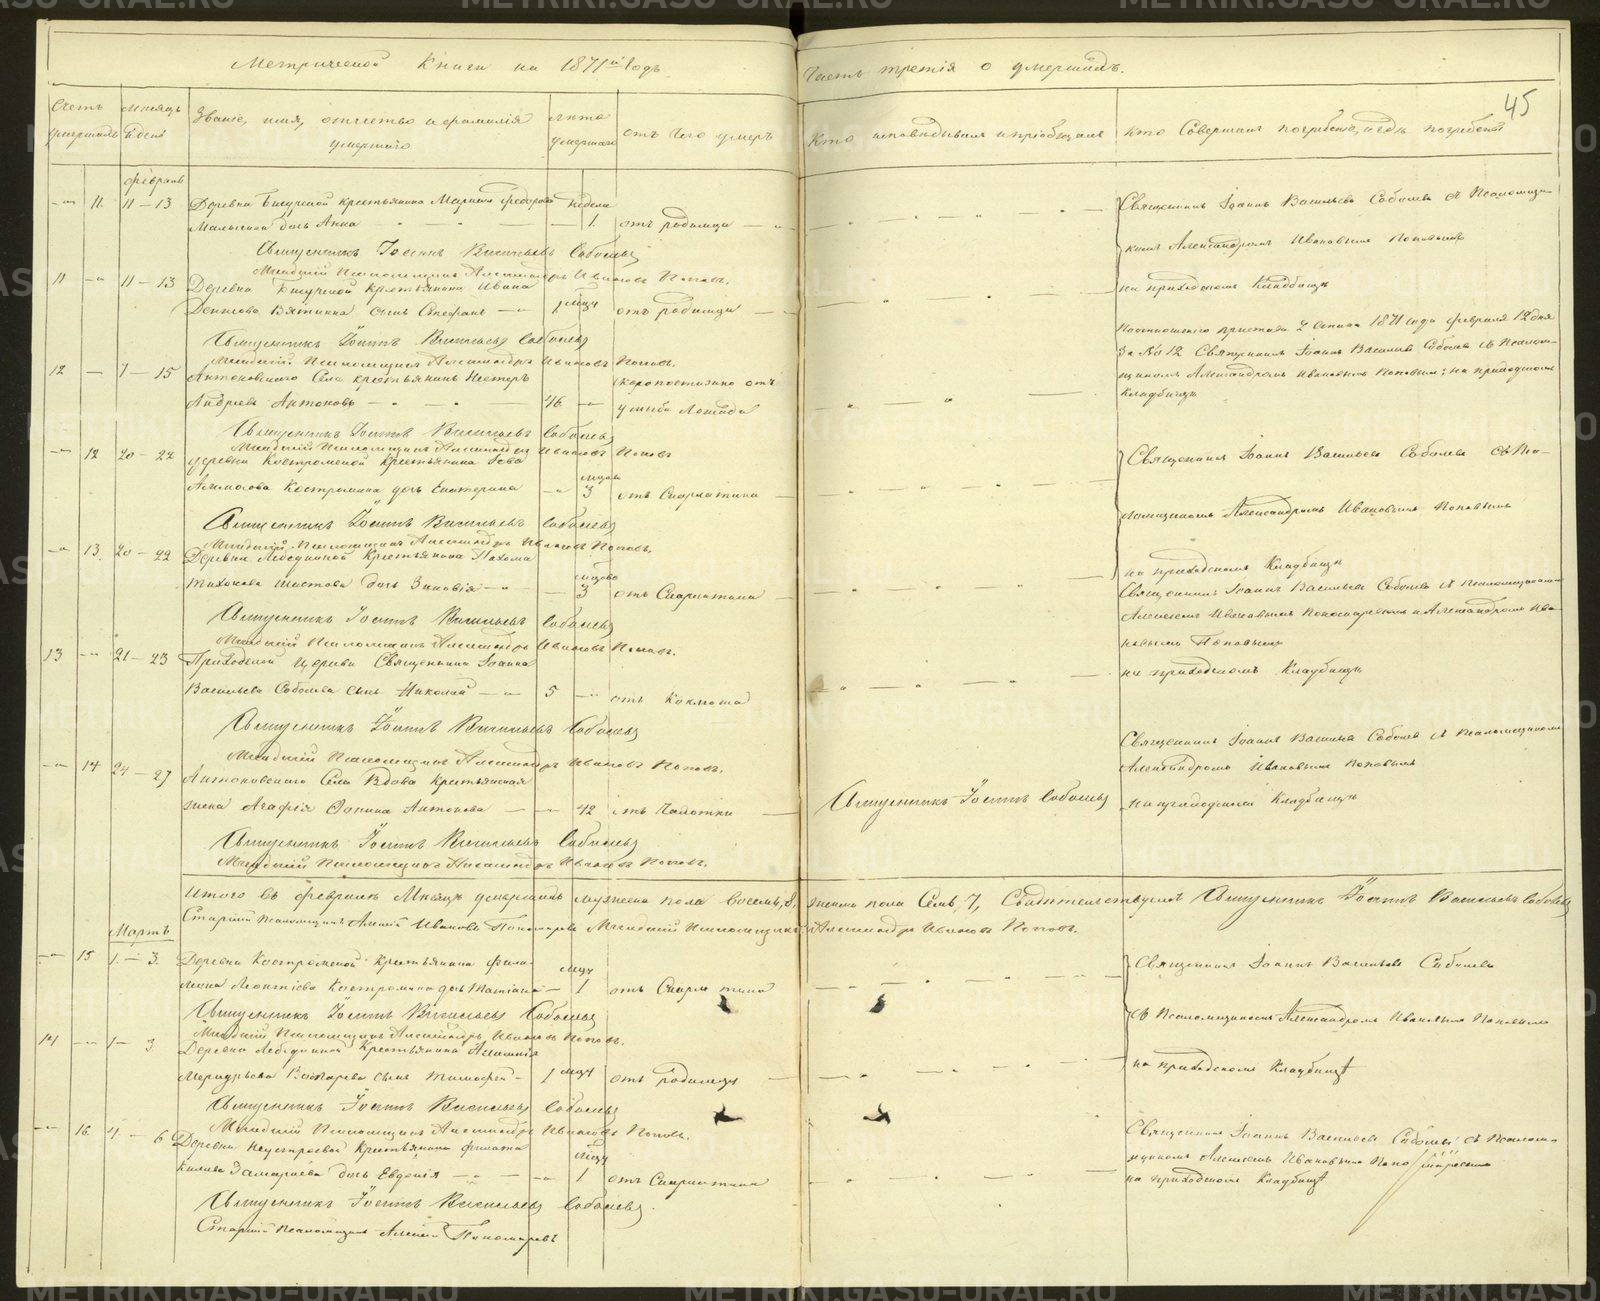 Метрической Книги на 1871й Годъ
Часть третія о умершихъ.
45
Счетъ умершихъ
Мѣсяцъ и день
Званіе, имя, отчество и фамилія умершаго
Лѣта умершаго
отъ чего умеръ
Кто исповѣдывалъ и пріобщалъ
Кто Совершалъ погребеніе, и гдѣ погребены
Февраль
11. 11 – 13 Деревни крестьянина Ѳедорова недѣля
дочь Анна 1. отъ родимца
Священникъ Іоаннъ Васильевъ Соболевъ
Младшій Псаломщикъ Александръ Ивановъ Поповъ.
Священникъ Іоаннъ Васильевъ Соболевъ съ Псаломщи-
комъ Александромъ Ивановымъ Поповымъ
на приходскомъ Кладбищѣ
11 11 – 13 Деревни крестьянина Ивана
Денисова Вяткина сынъ Стефанъ 1 мцъ отъ родимца
Священникъ Іоаннъ Васильевъ Соболевъ
Младшій Псаломщикъ Александръ Ивановъ Поповъ.
12 7 – 15 Антоновскаго Села крестьянинъ Нестеръ
Андреевъ Антоновъ 46 Скоропостижно отъ
ушиба Лошади
По отношенію пристава 2 Стана 1871 года февраля 12 дня
За № 12 Священникъ Іоаннъ Васильевъ Соболевъ съ Псалом-
щикомъ Александромъ Ивановымъ Поповымъ; на приходскомъ
Кладбищѣ
Священникъ Іоаннъ Васильевъ Соболевъ
Младшій Псаломщикъ Александръ Ивановъ Поповъ
12 20 – 22 деревни Костроминой Крестьянина
Костромина дочь Екатерина мцовъ 3 отъ Скарлатина
Священникъ Іоаннъ Васильевъ Соболевъ съ Пса-
ломщикомъ Александромъ Ивановымъ Поповымъ
на приходскомъ Кладбищѣ
Священникъ Іоаннъ Васильевъ Соболевъ
Младшій Псаломщикъ Александръ Ивановъ Поповъ.
13. 20 – 22 Деревни Лебедкиной Крестьянина Пахома
Тихонова дочь Зиновія мцовъ 3 отъ Скарлатина
Священникъ Іоаннъ Васильевъ Соболевъ
Младшій Псаломщикъ Александръ Ивановъ Поповъ.
Священникъ Іоаннъ Васильевъ Соболевъ съ Псаломщиками
Алексѣемъ Ивановымъ Пономаревымъ и Александромъ Ива-
новымъ Поповымъ
на приходскомъ Кладбищѣ
13 21 – 23 Приходской Церкви Священника Іоанна
Васильева Соболева сынъ Николай 5 отъ Коклюша
Священникъ Іоаннъ Васильевъ Соболевъ
Младшій Псаломщикъ Александръ Ивановъ Поповъ.
14 24 – 27 Антоновскаго Села Вдова Крестьянская
жена Агафія Фокина Антонова 42 отъ Чахотки
Священникъ Іоаннъ Соболевъ
Священникъ Іоаннъ Васильевъ Соболевъ съ Псаломщикомъ
Александромъ Ивановымъ Поповымъ
на приходскомъ Кладбищѣ
Священникъ Іоаннъ Васильевъ Соболевъ
Младшій Псаломщикъ Александръ Ивановъ Поповъ.
Итого въ Февралѣ Мѣсяцѣ умершихъ мужеска пола восемь, 8, женска пола Семь, 7, Свидѣтельствуемъ Священникъ Іоаннъ Васильевъ Соболевъ
Старшій Псаломщикъ Алексѣй Ивановъ Пономаревъ Младшій Псаломщикъ Александръ Ивановъ Поповъ.
Мартъ
15 1 – 3. Деревни Костроминой Крестьянина Фили-
мона Леонтіева Костромина дочь Татіана мцъ 1 отъ Скарлатина
Священникъ Іоаннъ Васильевъ Соболевъ
съ Псаломщикомъ Александромъ Ивановымъ Поповымъ
на приходскомъ Кладбищѣ
Священникъ Іоаннъ Васильевъ Соболевъ
Младшій Псаломщикъ Александръ Ивановъ Поповъ.
14 1 – 3. Деревни Лебедкиной Крестьянина
сынъ Тимофей 1 мцъ отъ родимца
Священникъ Іоаннъ Васильевъ Соболевъ
Младшій Псаломщикъ Александръ Ивановъ Поповъ.
16. 4. – 6 Деревни Крестьянина Филата
дочь Евдокія мцъ 1 отъ Скарлатина
Священникъ Іоаннъ Васильевъ Соболевъ съ Псалом-
щикомъ Алексѣемъ Ивановымъ Пономаревымъ
на приходскомъ Кладбищѣ
Священникъ Іоаннъ Васильевъ Соболевъ.
Старшій Псаломщикъ Алексѣй Пономаревъ
METRIKI.GASU-URAL.RU